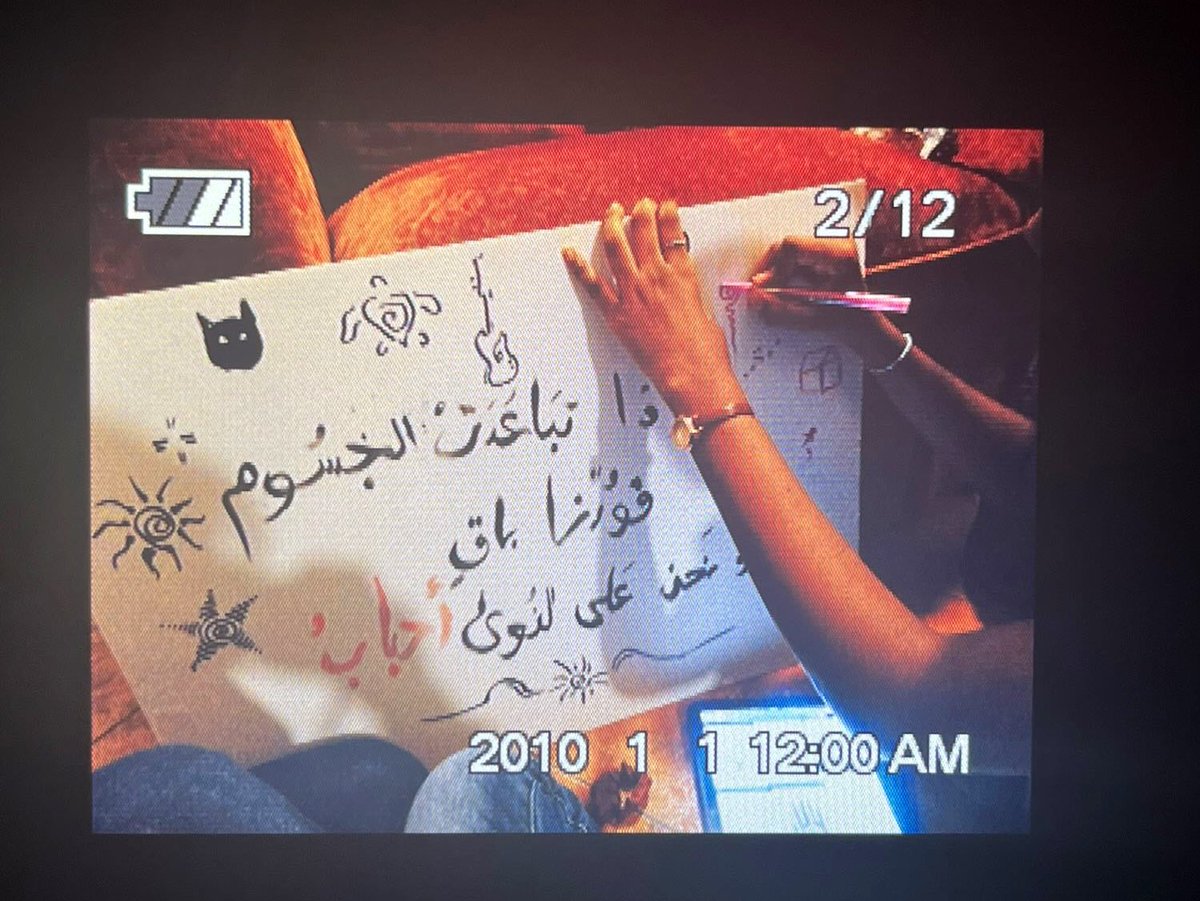 2/12
ذا تَبَاعَدَتْ الجسُوم
فَوُدّنا باقٍ
و نَحن عَلى لنُوى أحبابُ
2010 1 1 12:00 AM